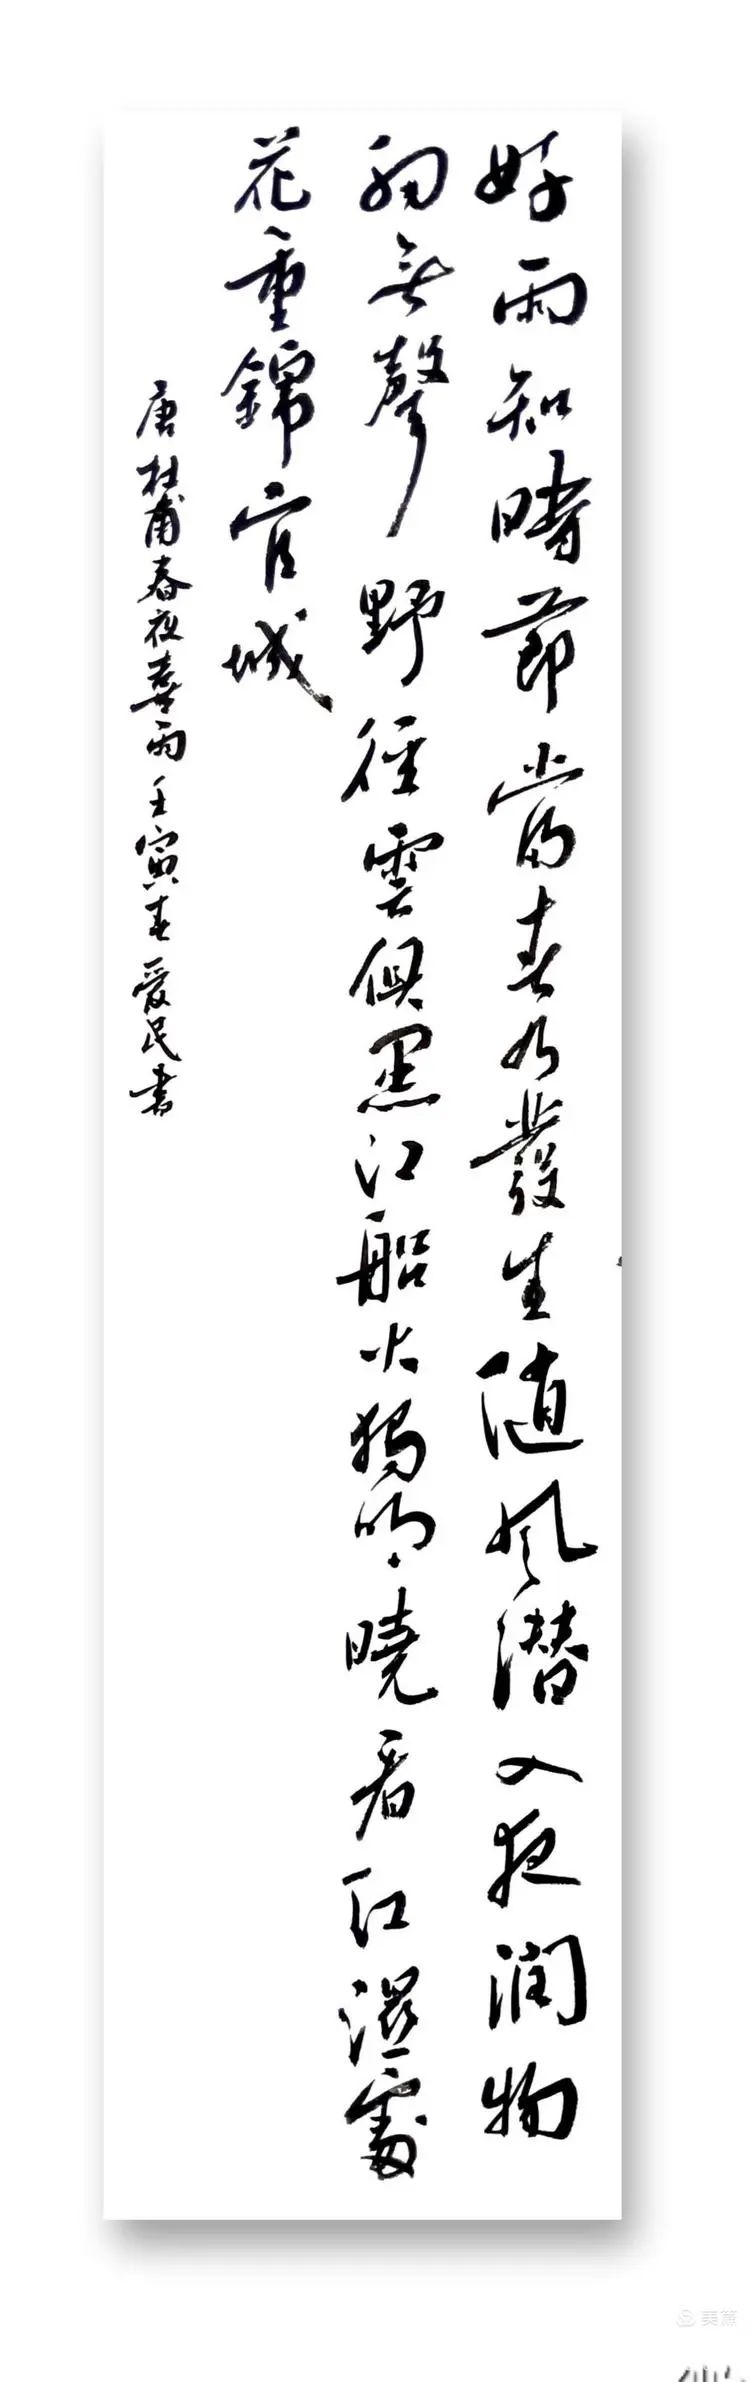 好雨知時節當春乃發生随風潜入夜潤物
細無聲野徑雲俱黑江船火獨明曉看紅濕處
花重錦官城
唐杜甫春夜喜雨壬寅春愛民書
美篇